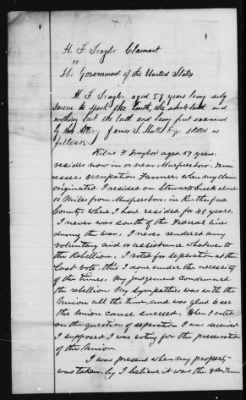 H. F. Traylor Claimant
"
The Government of the United States
H F Traylor, aged 57 years being duly
sworn to speak the truth, the whole truth and
nothing but the truth and being first examined
by his Atty James states as
follows:
Hilas F Traylor aged 57 years.
resides now in or near Murfreesboro, Tenn
essee; occupation Farmer, when my claim
originated I resided on Stewarts Creek some
10 Miles from Murfreesboro, in Rutherford
County where I have resided for 25 years.
I never was south of the Federal lines
during the war, I never rendered any
voluntary aid or assistance whatever to
the Rebellion, I voted for separation at the
last vote, this I done under the necessity
of the times, My judgement condemned
the rebellion My sympathies was with the
Union all the time, and was glad to see
the Union cause succeed, When I voted
on the question of separation I was deceived
I supposed I was voting for the preservation
of the Union.
I was present when my property
was taken by I believe it was the